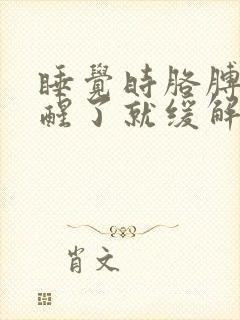 睡覺时胳膊
醒了就缓解
肖文